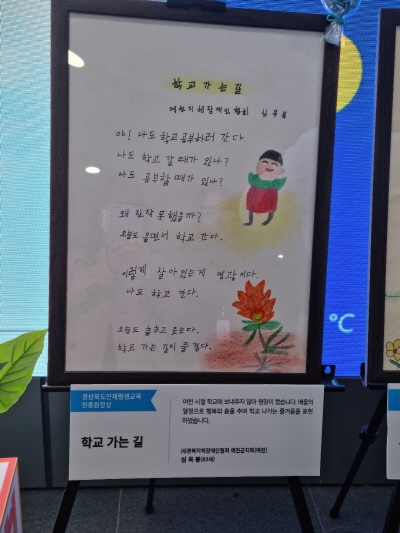 학교 가는 길
예천지체장애인협회 심옥봉
야! 나도 학교 공부하러 간다.
나도 학교 갈 때가 있나?
나도 공부할 때가 있나?
왜 진작 못했을까?
오늘도 울면서 학교 간다.
이렇게 살아있는게 영광이다.
나도 학교 간다.
오늘도 춤추고 웃는다.
학교 가는 길이 즐겁다.
℃
경상북도인재평생교육
진흥원장상
학교 가는 길
어린 시절 학교에 보내주지 않아 원망이 컸습니다. 배움의
열정으로 행복의 춤을 추며 학교 나가는 즐거움을 표현
하였습니다.
(사)경북지체장애인협회 예천군지회(예천)
심옥봉(83세)